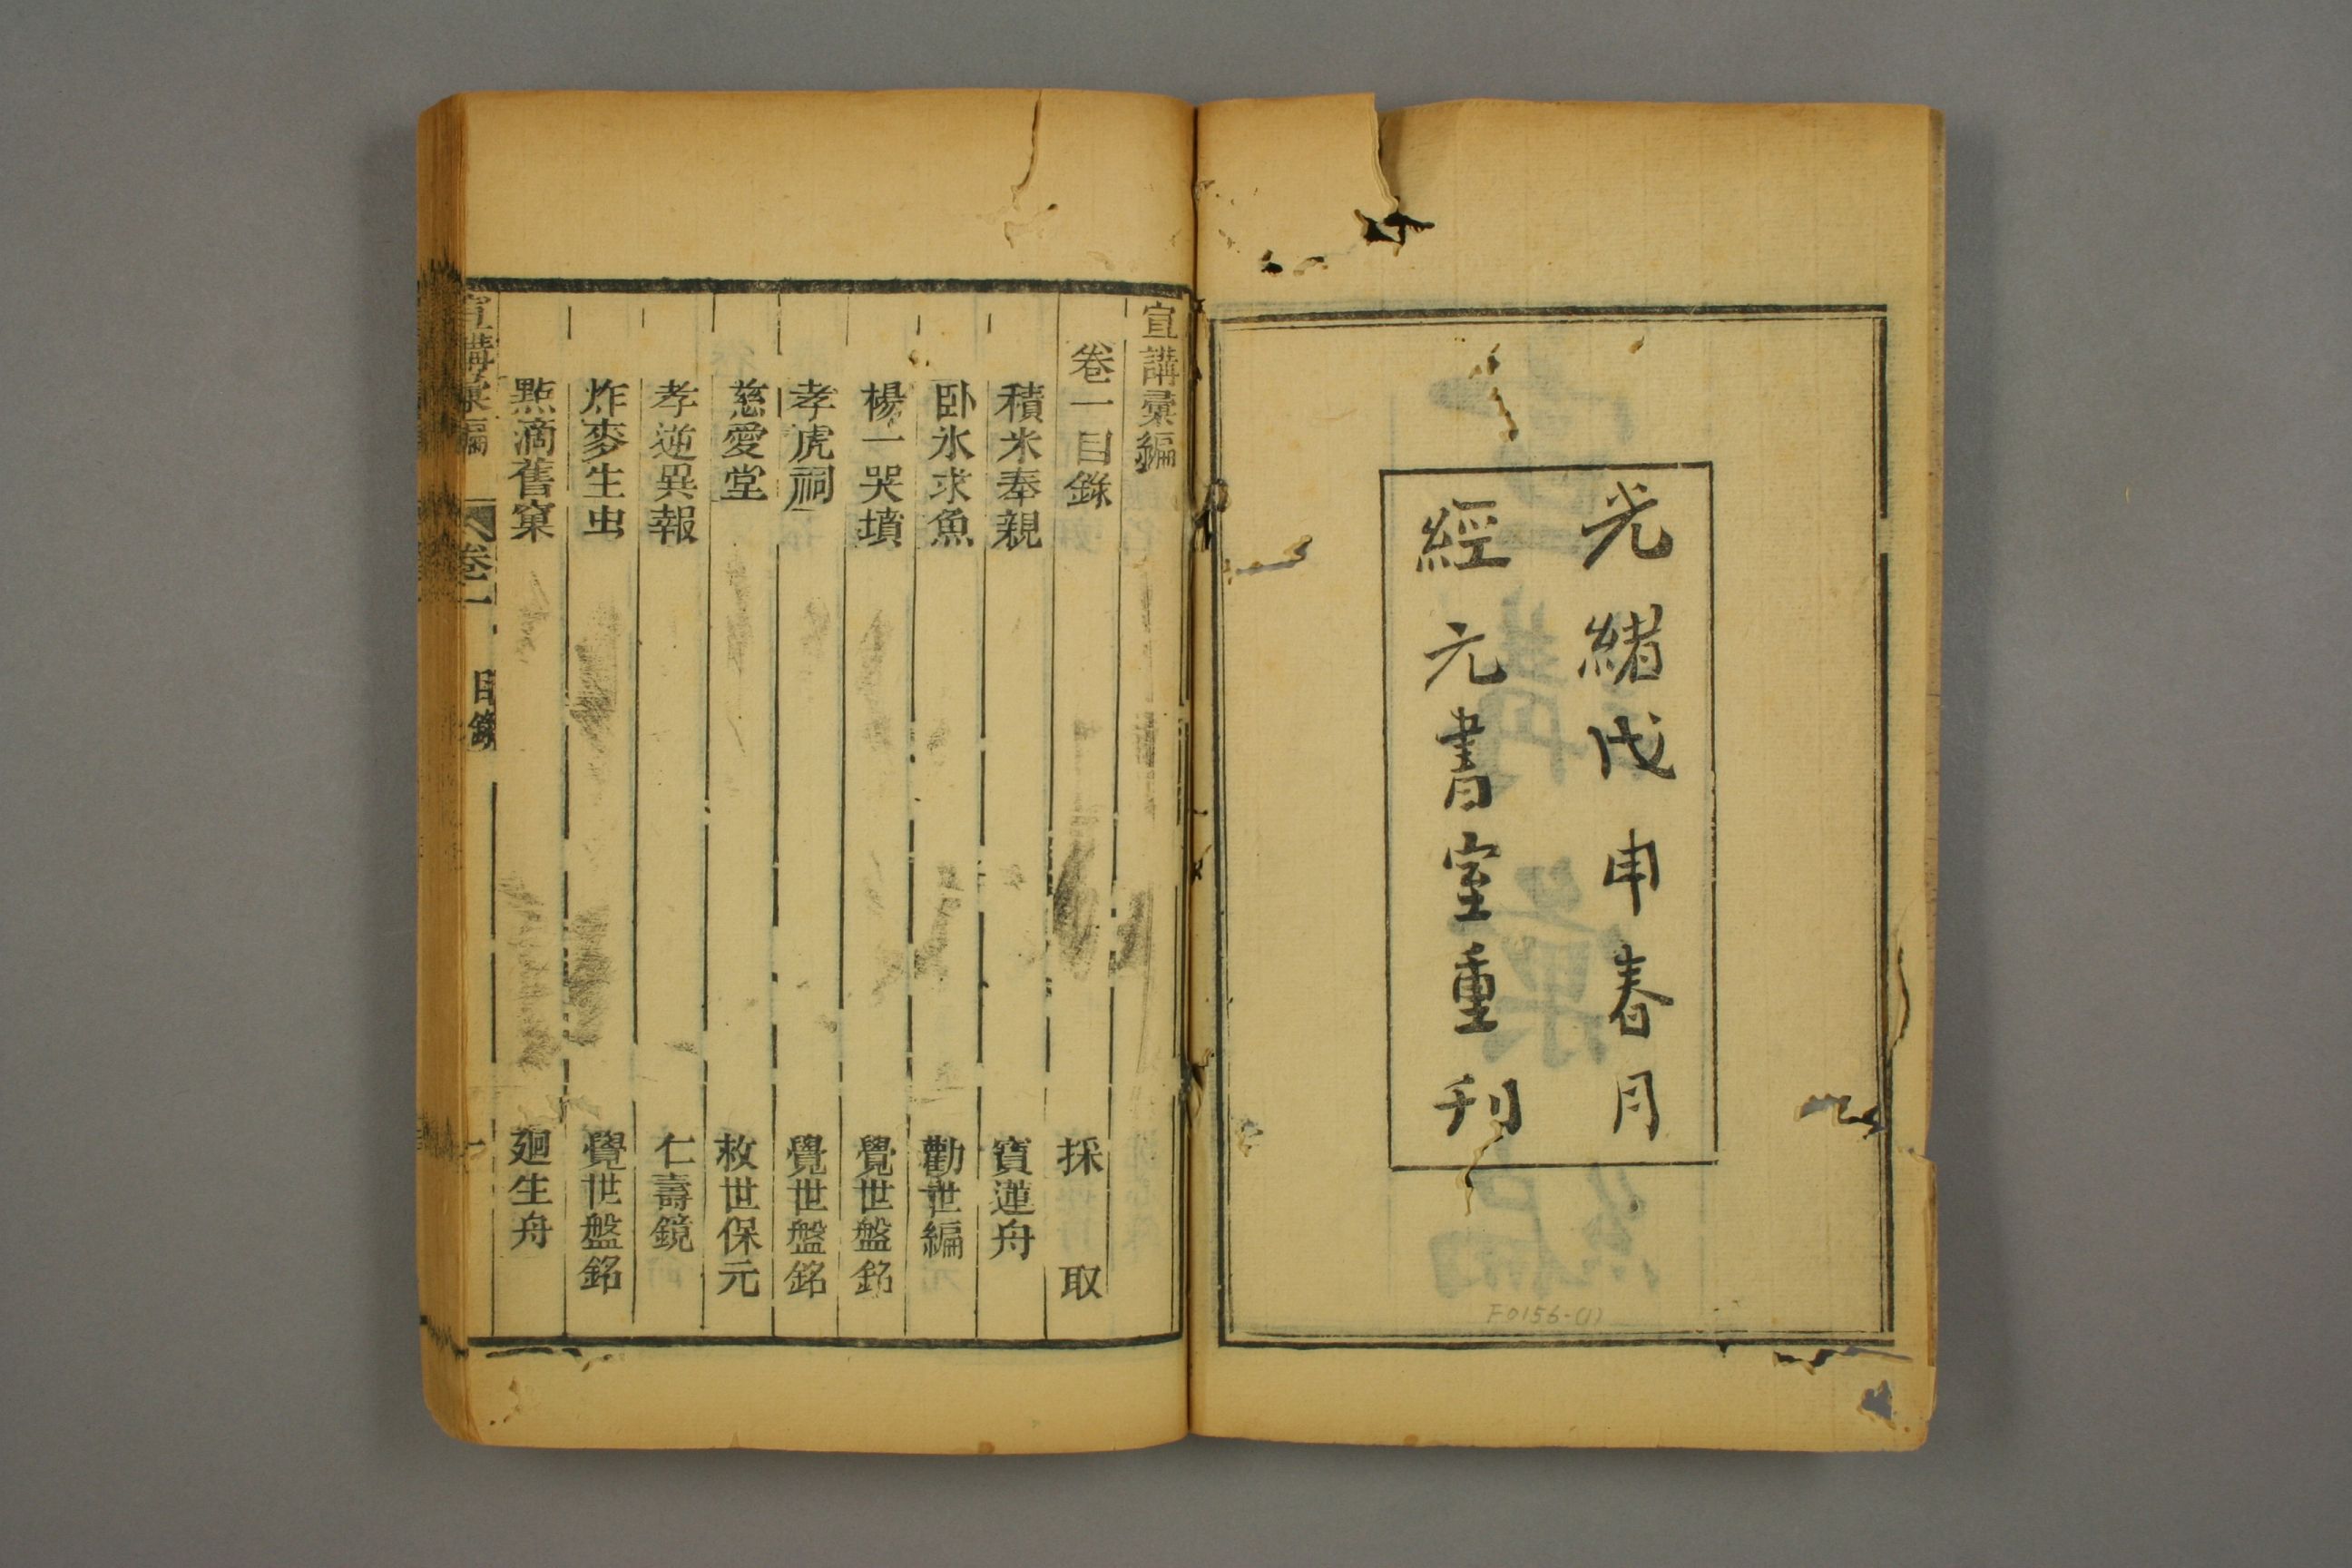 光緒戊申春月
經元書室重刊
F0156-(1)
宣講彙編
卷一目錄 採取
積米奉親 寶蓮舟
卧氷求魚 勸世編
楊一哭墳 覺世盤銘
孝虎祠 覺世盤銘
慈愛堂 救世保元
孝逆異報 仁壽鏡
炸麥生虫 覺世盤銘
點滴舊窠 廻生舟
宣講彙編 卷一 目錄 一